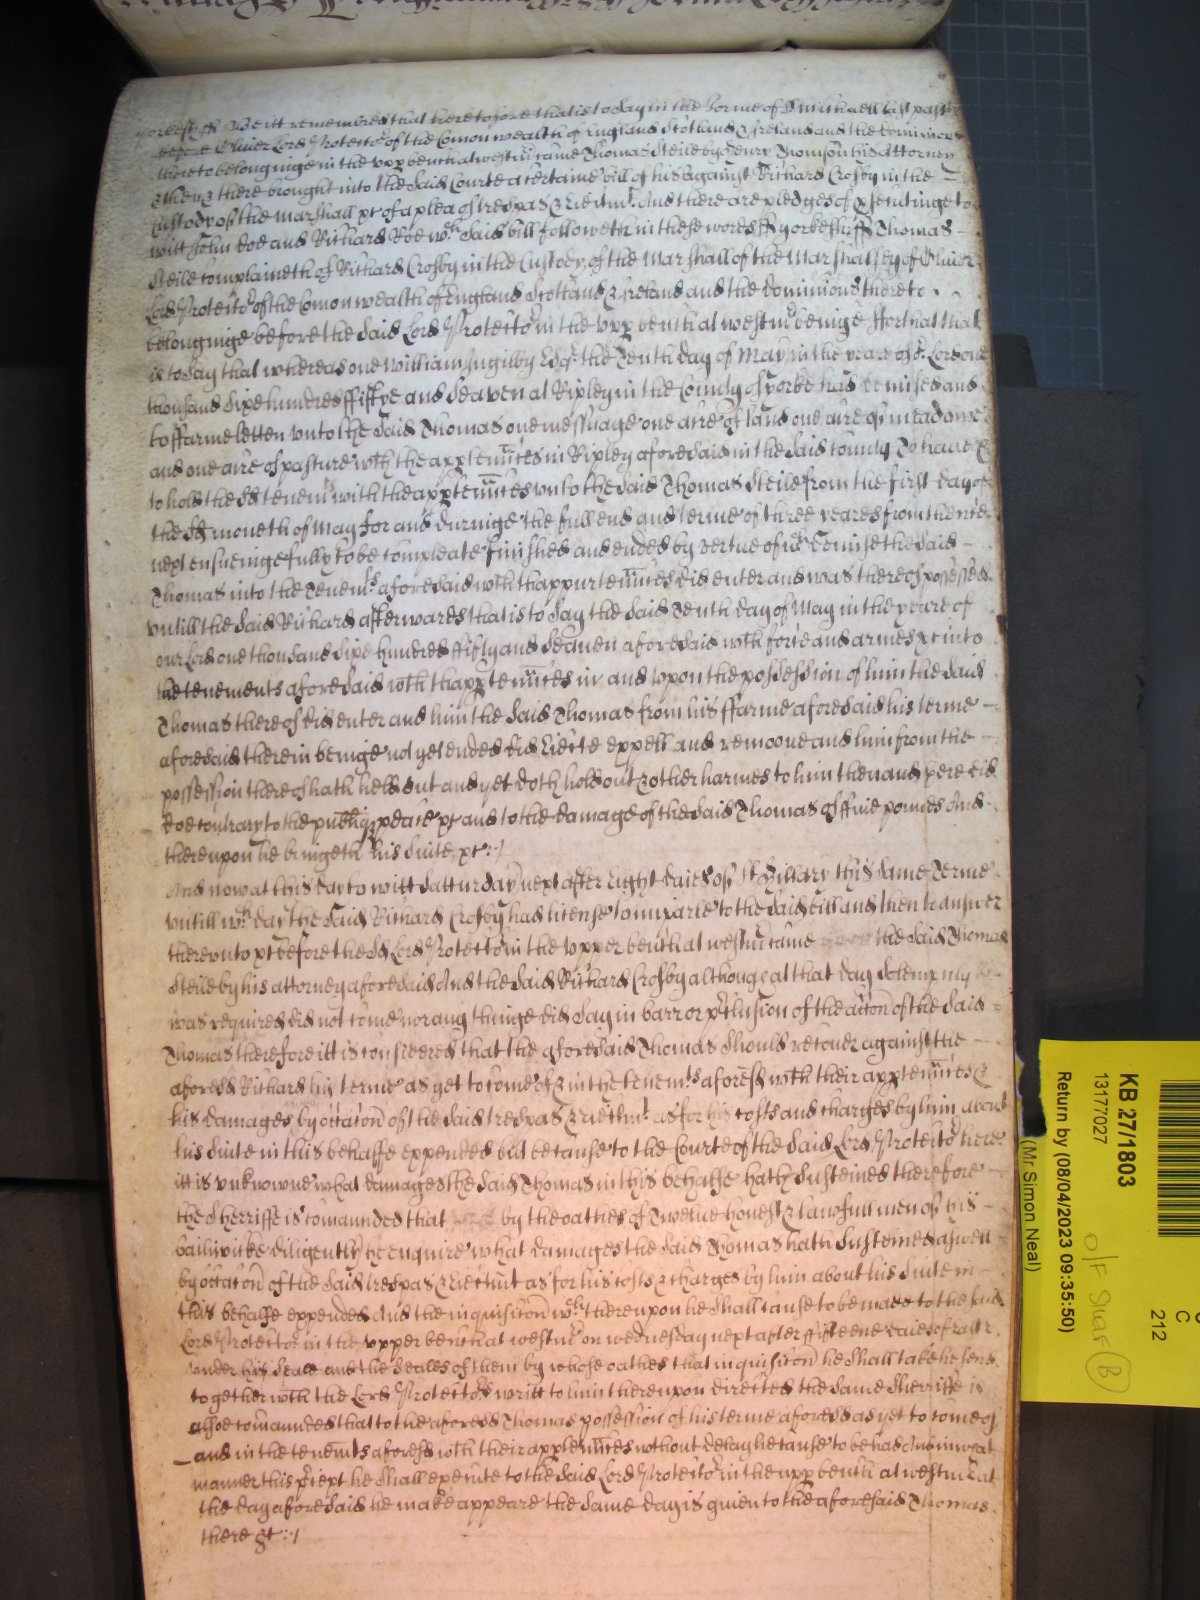 Yorkesh ss Be itt remembred that heretofore that is to say in the Terme of St Michaell last past
before Oliver Lord Protector of the Comon wealth of England Scotland & Ireland and the dominions
thereto belonginge in the upp bench at westmr came Thomas Steile by Henry Thomson his Attorney
& then & there brought into the said Courte a certaine bill of his against Richard Crosby in the
Custody of the marshall &c of a plea of trespas & Eiectmt And there are pledges of psecutinge to
witt John Doe and Richard Roe wch said bill followeth in these words ss yorkesh ss Thomas
Steile complaineth of Richard Crosby in the Custody of the Marshall of the Marshalsey of Oliver
Lord Protector of the Comon wealth of England Scotland & Ireland and the dominions thereto
belonginge before the said Lord Protector in the upp bench at westmr beinge ffor that that
is to say that whereas one William Ingilby Esqr the Tenth day of May in the yeare of or Lord one
thousand sixe hundred ffiftye and seaven at Ripley in the County of yorke had demised and
to ffarme letten unto the said Thomas one messuage one acre of land one acre of meadowe
and one acre of pasture with the apptenncs in Ripley aforesaid in the said county To have &
to hold the sd tenemts with the apptenncs unto the said Thomas Steile from the first day of
the sd moneth of May for and duringe the full end and terme of three yeares from thence
next ensueinge fully to be compleate finished and ended by vertue of wch demise the said
Thomas into the Tenemts aforesaid with thappurtenncs did enter and was thereof possessed
untill the said Richard afterwards that is to say the said Tenth day of May in the yeare of
our Lord one thousand sixe hundred ffifty and seaven aforesaid with force and armes &c into
the tenements aforesaid with thapptenncs in and upon the possession of him the said
Thomas thereof did enter and him the said Thomas from his ffarme aforesaid his terme
aforesaid therein beinge not yet ended did Eiecte expell and remoove and him from the
possession thereof hath held out and yet doth hold out & other harmes to him then and there did
doe contrary to the publiq peace &c and to the damage of the said Thomas of ffive pounds And
thereupon he bringeth his suite &c
And now at this day to witt Satturday next after Eight daies of St Hillary this same Terme
untill wch day the said Richard Crosby had license to imparle to the said bill and then to answer
thereunto &c before the sd Lord Protector in the upper bench at westmr came the said Thomas
Steile by his attorney aforesaid And the said Richard Crosby althouge at that day solempnly
was required did not come nor any thinge did say in barr or preclusion of the accon of the said
Thomas therefore itt is considered that the aforesaid Thomas should recover against the
aforesd Richard his terme as yet to come of & in the tenemts aforesd with their apptenncs &
his damages by occacon of the said trespas & eiectmt as for his costs and charges by him about
his suite in this behalfe expended but because to the Courte of the said Lord Protector here
it is unknowne what damages the said Thomas in this behalfe hath susteined therefore
the Sherriffe is comaunded that by the oathes of Twelve honest & lawfull men of his
bailiwicke diligently he enquire what damages the said Thomas hath susteined aswell
by occacon of the said trespas & eiectmt as for his costs & charges by him about his suite in
this behalfe expended And the inquisicon wch thereupon he shall cause to be made to the said
Lord Protector in the upper bench at westmr on wednesday next after ffifteene daies of easter
under his seale and the seales of them by whose oathes that inquisicon he shall take he send
together with the Lord Protectors writt to him thereupon directed the same Sherriffe is
alsoe comaunded that to the aforesd Thomas possession of his terme aforesd as yet to come of
and in the tenemts aforesd with their apptenncs without delay he cause to be had And in what
manner this pcept he shall execute to the said Lord Protector in the upp bench at westmr at
the day aforesaid he make appeare the same day is given to the aforesaid Thomas
there &c
KB 27/1803
13177027
Return by (08/04/2023 09:35:50)
(Mr Simon Neal)
C
212
O/F Shelf B